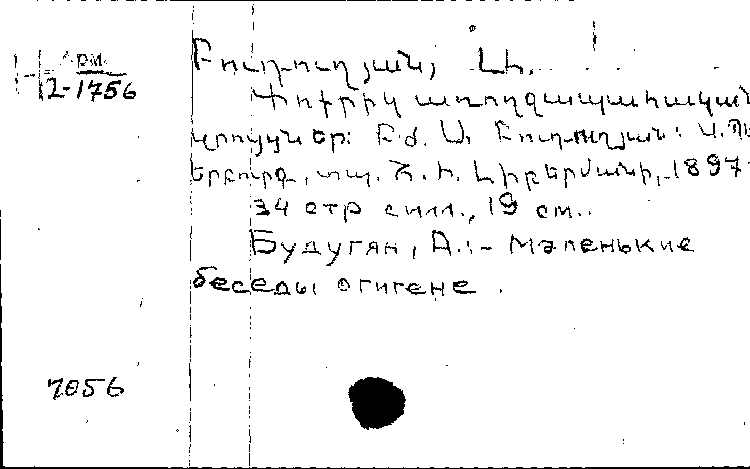 Арм.
2-1756
Բուդուղյան, Ա.
Փոքրիկ առողջապահական
զրույցներ: Բժ. Ա. Բուդուղյան: Ս.Պե
երբուրգ, տպ. Ի. Լիբերմանի, 1897-
34 стр с илл., 19 см..
Будугян, А.:- Маленькие
беседы о гигене.
7056